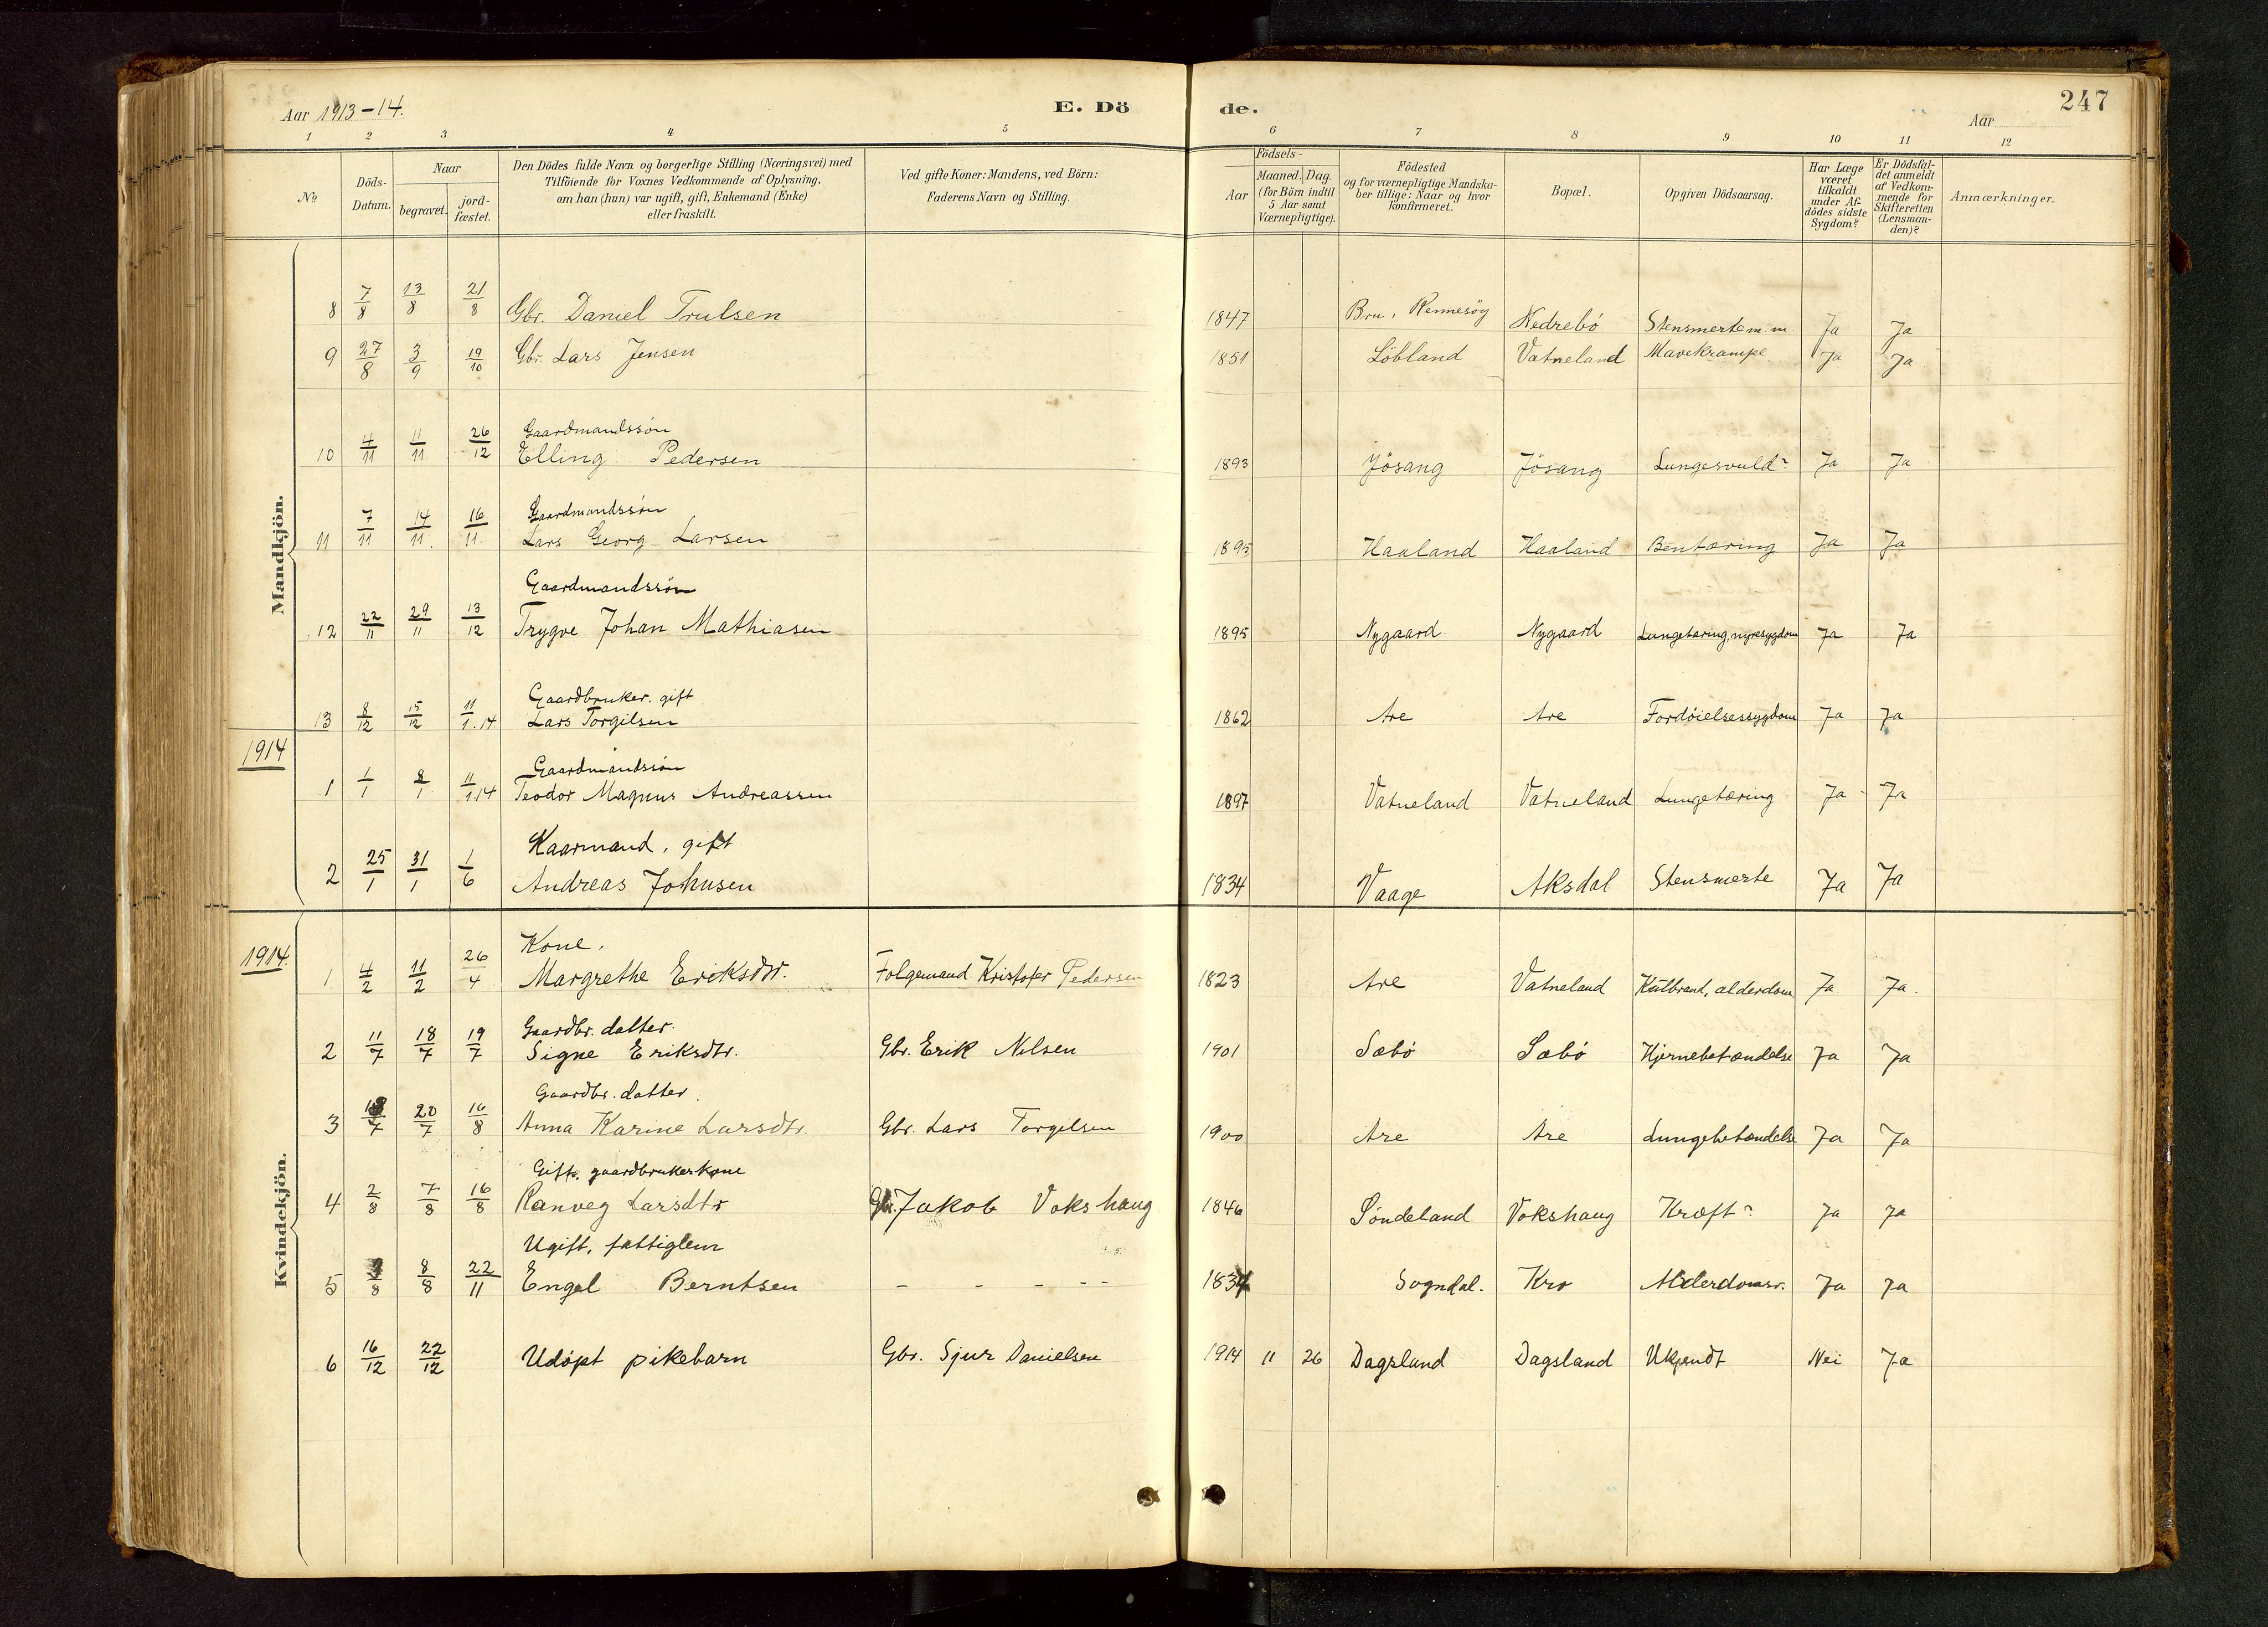 Aar 1913-14.
E. Dö
de.
Aar
247
1 2 3 4 5 6 7 8 9 10 11 12
No.
Döds-Datum.
Naar
begravet.
jord-fæstet.
Den Dödes fulde Navn og borgerlige Stilling (Næringsvei) med
Tilföiende for Voxnes Vedkommende af Oplysning,
om han (hun) var ugift, gift, Enkemand (Enke)
eller fraskilt.
Ved gifte Koner: Mandens, ved Börn:
Faderens Navn og Stilling.
Födsels-
Aar
Maaned. Dag.
(for Börn indtil
5 Aar samt
Værnepligtige).
Födested
og for værnepligtige Mandska-
ber tillige: Naar og hvor
konfirmeret.
Bopæl.
Opgiven Dödsaarsag.
Har Læge
været
tilkaldt
under Af-
dödes sidste
Sygdom?
Er Dödsfal-
det anmeldt
af Vedkom-
mende for
Skifteretten
(Lensman-
den)?
Anmærkninger.
Mandkjön.
8 7/8 13/8 21/8 Gbr. Daniel Trulsen 1847 Bru, Rennesöy Nedrebö Stensmerte m. m. Ja Ja
9 27/8 3/9 19/10 Gbr. Lars Jensen 1851 Löbland Vatneland Mavekrampe Ja Ja
Gaardmandssön
10 4/11 11/11 26/12 Elling Pedersen 1893 Jösang Jösang Lungesvuld? Ja Ja
Gaardmandssön
11 7/11 14/11. 16/11. Lars Georg Larsen 1895 Haaland Haaland Bentæring Ja Ja
Gaardmandssön
12 22/11 29/11 13/12 Trygve Johan Mathiasen 1895 Nygaard Nygaard Lungetæring, nyresygdom Ja Ja
Gaardbruker, gift
13 8/12 15/12 11/1.14 Lars Torgilsen 1862 Are Are Fordöielsessygdom Ja Ja
1914
Gaardmandssön
1 1/1 8/1 11/1.14 Teodor Magnus Andreassen 1897 Vatneland Vatneland Lungetæring Ja Ja
Kaarmand, gift
2 25/1 31/1 1/6 Andreas Johnsen 1834 Vaage Aksdal Stensmerte Ja Ja
Kvindekjön.
1914.
Kone.
1 4/2 11/2 26/4 Margrethe Eriksdtr. Folgemand Kristofer Pedersen 1823 Are Vatneland Koldbrand, alderdom Ja Ja.
Gaardbr. datter.
2 11/7 18/7 19/7 Signe Eriksdtr. Gbr. Erik Nilsen 1901 Sæbö Sæbö Hjernebetændelse Ja Ja
Gaardbr. datter.
3 13/7 20/7 16/8 Anna Karine Larsdtr. Gbr. Lars Torgilsen 1900 Are Are Lungebetændelse Ja Ja
Gift. gaardbrukerkone
4 2/8 7/8 16/8 Ranveg Larsdtr Gbr. Jakob Vokshaug 1846 Söndeland Vokshaug Kræft? Ja Ja
Ugift, fattiglem
5 3/8 8/8 22/11 Engel Berntsen - - - - - 1834 Sogndal. Kro Alderdomsv. Ja Ja
6 16/12 22/12 Udöpt pikebarn Gbr. Sjur Danielsen 1914 11 26 Dagsland Dagsland Ukjendt Nei Ja